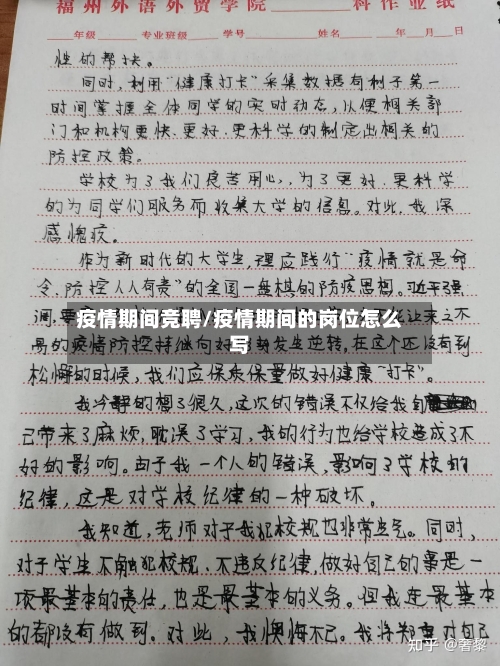 福州外语外贸学院 科作业纸
年级 专业班级 学号 姓名 年 月 日
性的帮扶。
同时,利用"健康打卡"采集数据有利于第一
时间掌握全体同学的实时动态,以便相关部
门和机构更快、更好、更科学的制定出相关的
防控政策。
学校为了我们良苦用心,为了更好、更科学
的为同学们服务而收集大学的信息。对此,我深
感愧疚。
作为新时代的大学生,理应践行"疫情就是命
令,防控人人有责"的全国一盘棋的防疫思想。习近平强
调,要
疫情期间竞聘/疫情期间的岗位怎么
写
让来之不
易的疫情防控持继向好 发生逆转,在这个还没有到
松懈的时候,我们应保质保量做好健康"打卡"。
我冷静的想了很久,这次的错误不仅给我自
己带来了麻烦,耽误了学习,我的行为也给学校造成了不
好的影响。由于我一个人的错误,影响了学校的
纪律,这是对学校纪律的一种破坏。
我知道,老师对于我犯校规也非常生气。同时,
对于学生不触犯校规、不违反纪律,做好自己的事是一
项最基本的责任,也是最基本的义务。但我连最基本
的都没有做到。对此,我懊悔不已。我将郑重对自己
知乎 @奢黎